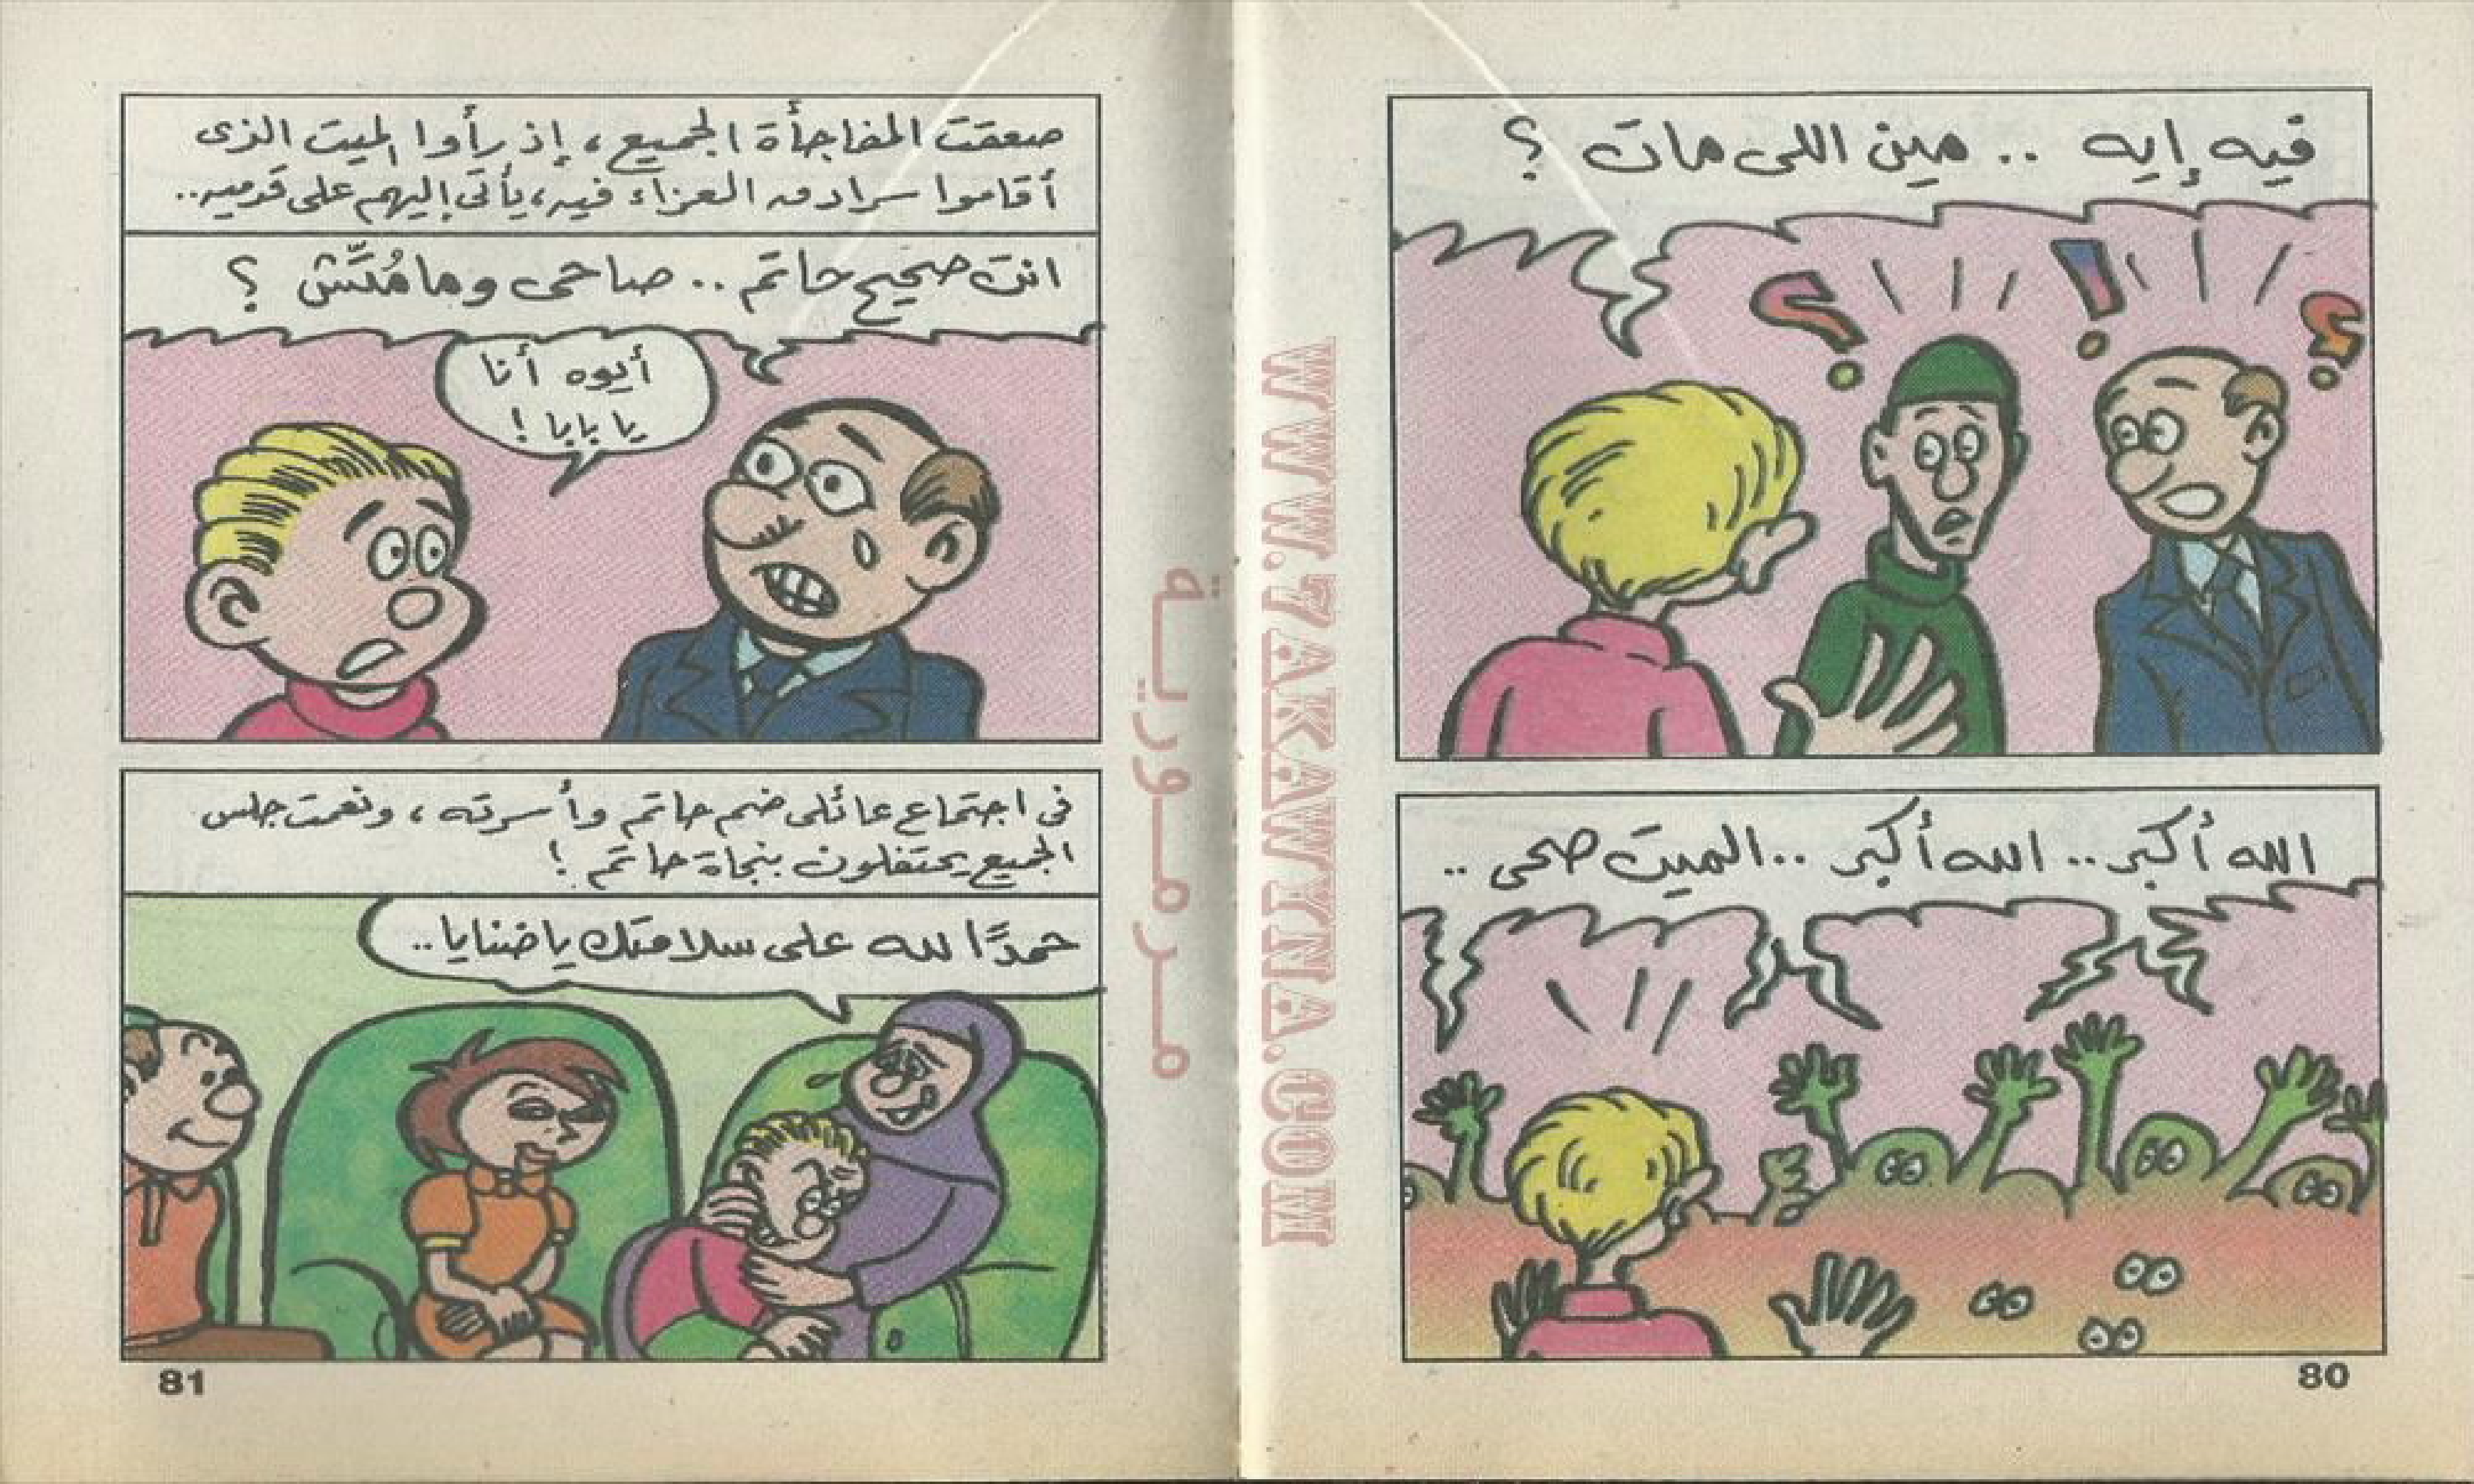 فيه إيه .. مين اللى مات ؟
الله أكبر .. الله أكبر .. الميت صحى ..
80
صعقت المفاجأة الجميع ، إذ رأوا الميت الذى
أقاموا سرادق العزاء فيه ، يأتى إليهم على قدميه ..
انت صحيح حاتم .. صاحى وما مُتّش ؟
أيوه أنا
يا بابا !
فى اجتماع عائلى ضم حاتم وأسرته ، ونعمت جلس
الجميع يحتفلون بنجاة حاتم !
حمدًا لله على سلامتك يا ضنايا ..
81
مرمورية
WWW.7AKAWYNA.COM